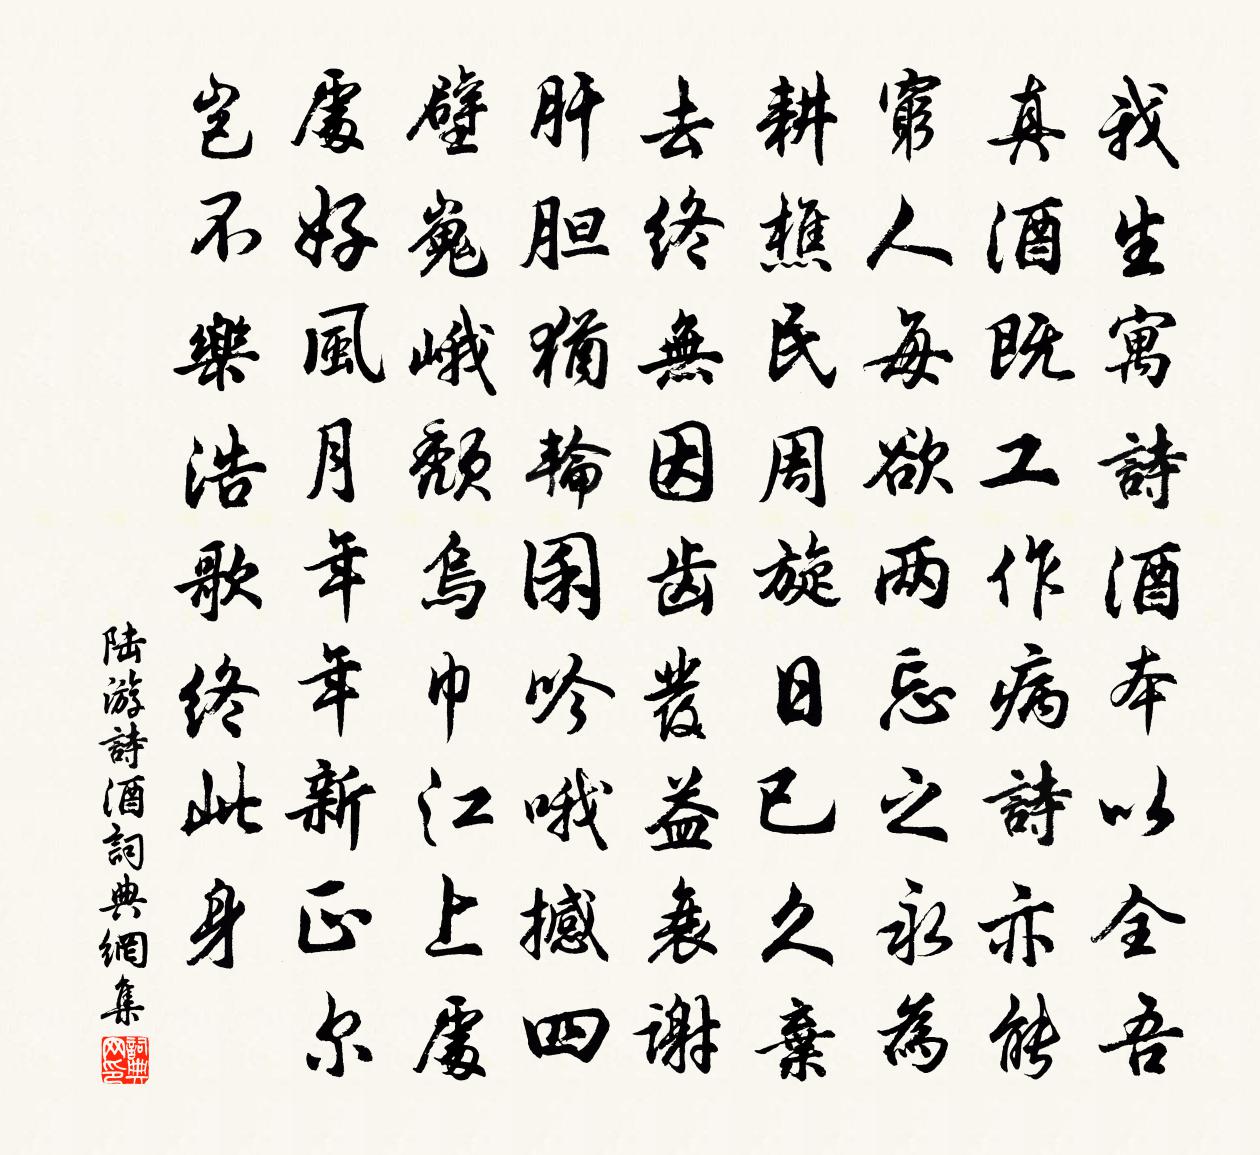 我生寓詩酒本以全吾
真酒既工作病詩亦能
窮人每欲两忘之永為
耕樵民周旋日已久棄
去终無因齿發益衰谢
肝胆猶輪囷吟哦撼四
壁嵬峨頹烏巾江上處
處好風月年年新正尔
岂不樂浩歌终此身
陆游詩酒詞典網集
詞典网印